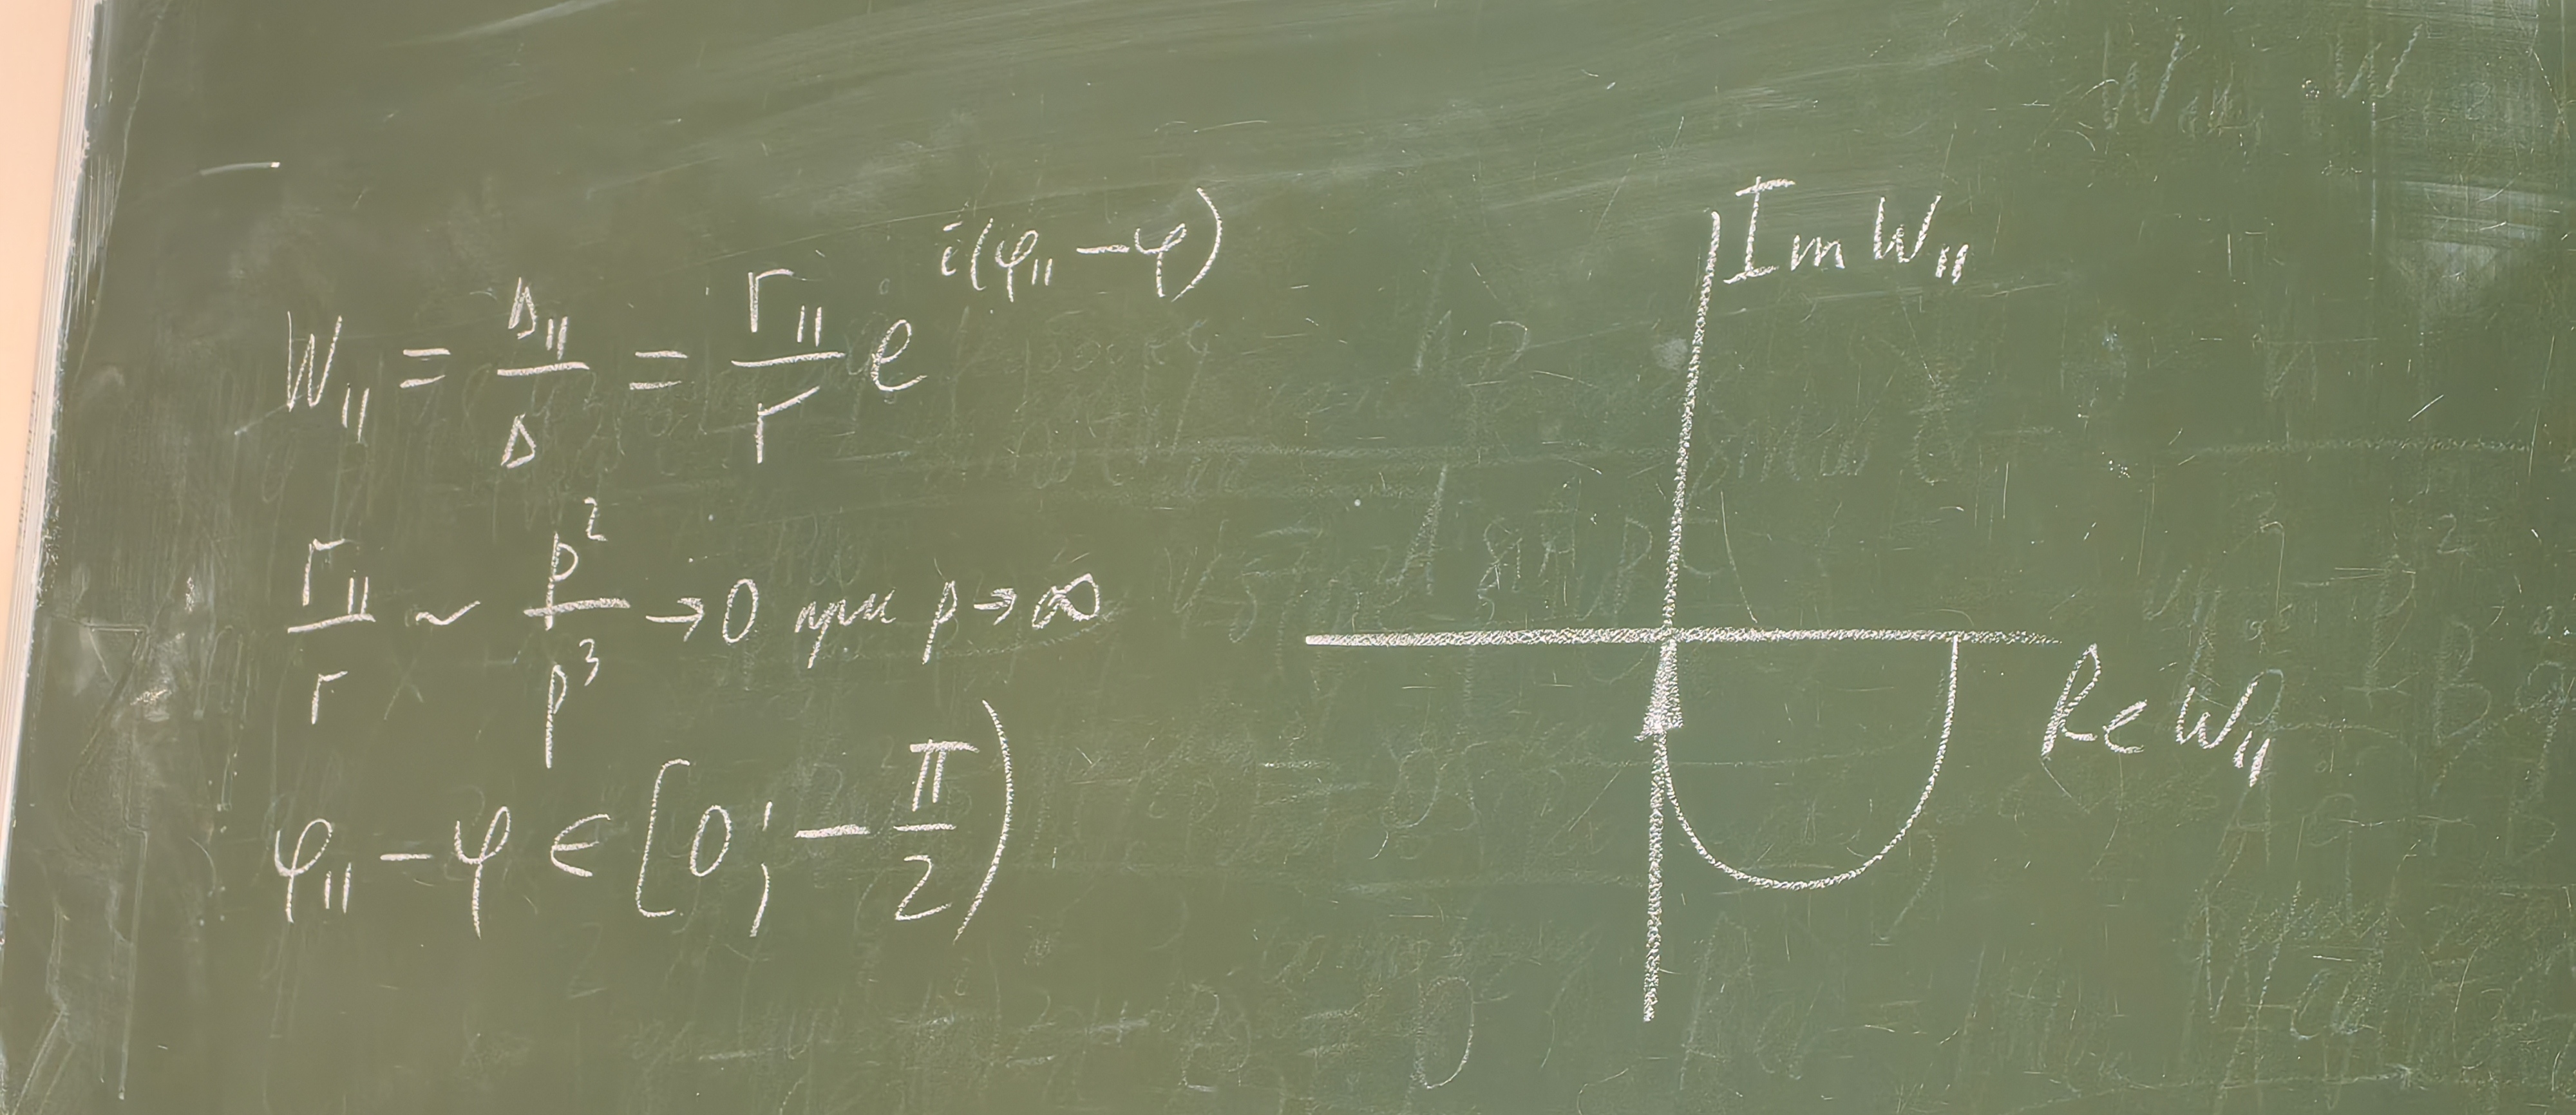 W₁₁ = Δ₁₁/Δ = r₁₁/r e^{i(φ₁₁ − φ)}
r₁₁/r ~ p²/p³ → 0 при p → ∞
φ₁₁ − φ ∈ [0; −π/2)
Im W₁₁
Re W₁₁